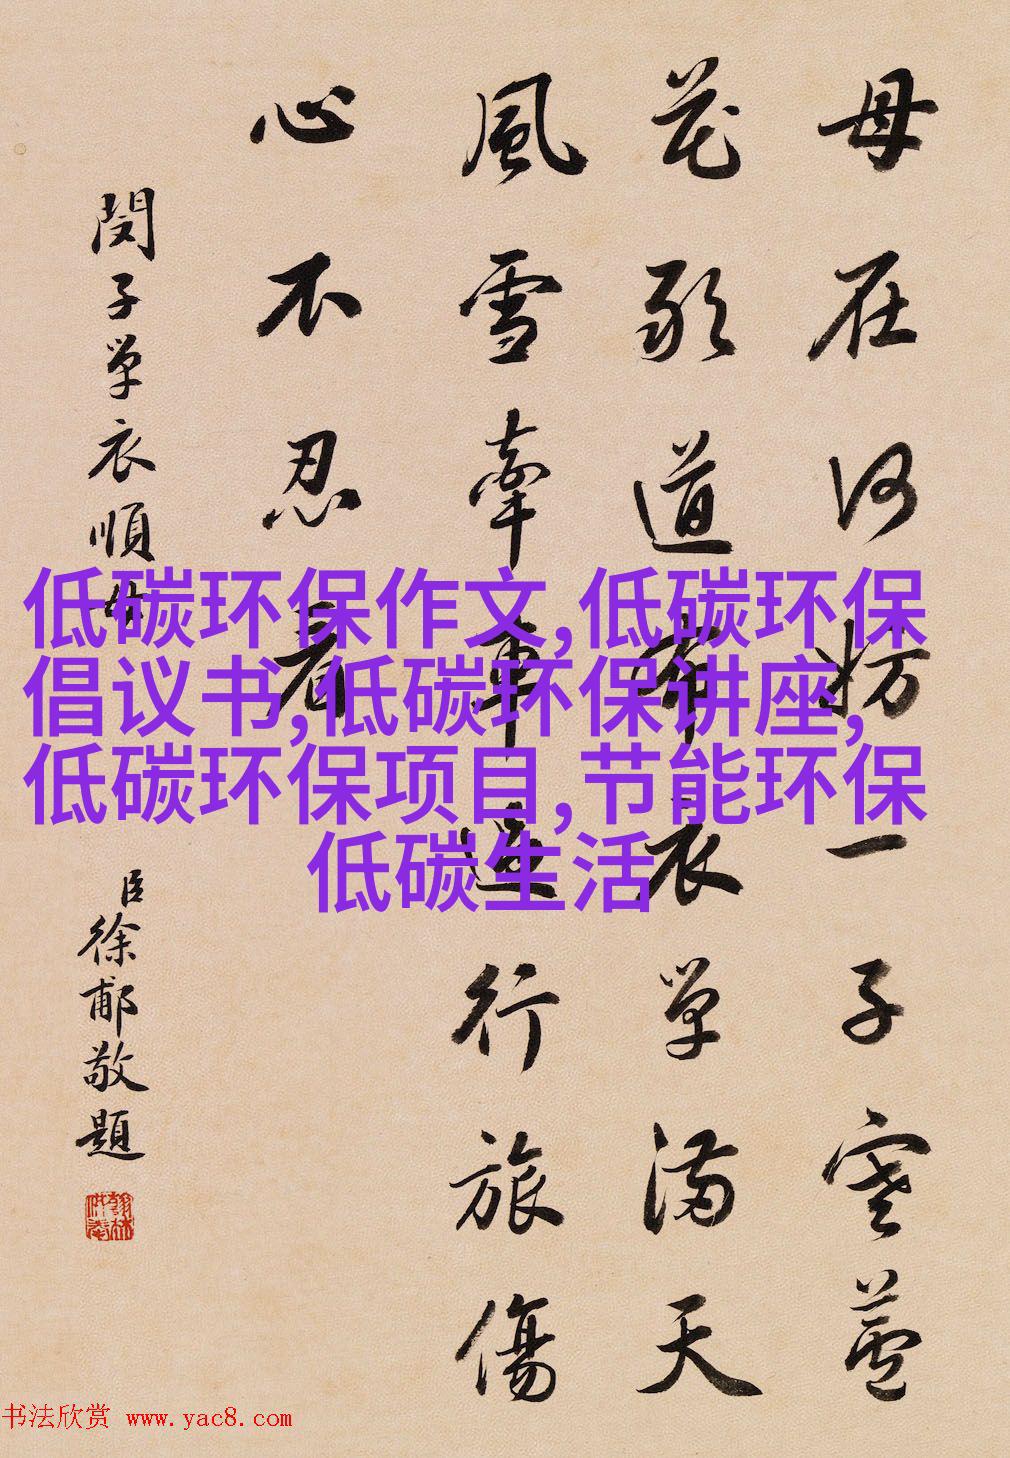 母在何妨一子寒蘆
花道衣單滿天
風雪牽車行旅傷
心不忍看
閔子單衣順母
臣徐郙敬題
翰林供奉
低碳环保作文,低碳环保
倡议书,低碳环保讲座,
低碳环保项目,节能环保
低碳生活
书法欣赏 www.yac8.com